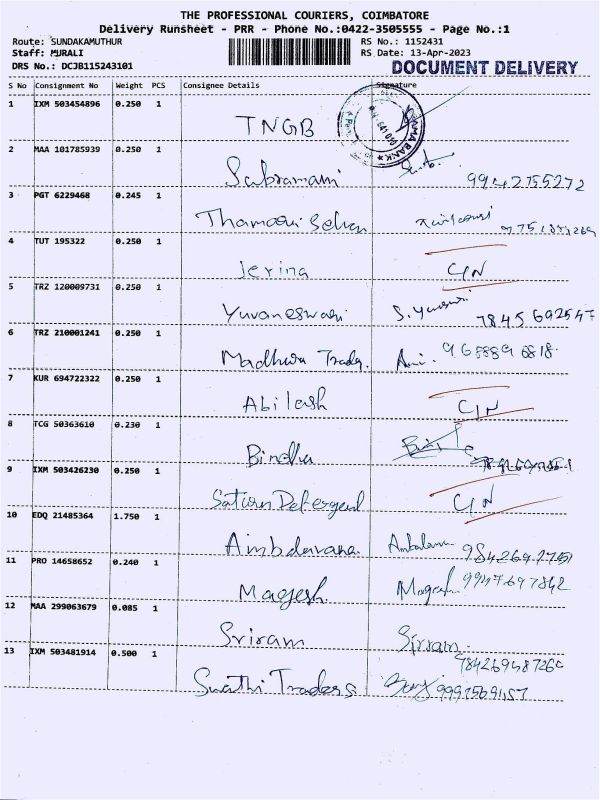 THE PROFESSIONAL COURIERS, COIMBATORE
Delivery Runsheet - PRR - Phone No.:0422-3505555 - Page No.:1
Route: SUNDAKAMUTHUR RS No.: 1152431
Staff: MURALI RS Date: 13-Apr-2023
DRS No.: DCJB115243101 DOCUMENT DELIVERY
S No Consignment No Weight PCS Consignee Details Signature
1 IXM 503454896 0.250 1 TNGB
2 MAA 101785939 0.250 1 Sabramani 9942755272
3 PGT 6229468 0.245 1
4 TUT 195322 0.250 1 Jerina C/N
5 TRZ 120009731 0.250 1 Yuvaneswari 7845692547
6 TRZ 210001241 0.250 1 Madhura
7 KUR 694722322 0.250 1 Abilash C/N
8 TCG 50363610 0.230 1 Bindhu
9 IXM 503426230 0.250 1 Saturn Detergent C/N
10 EDQ 21485364 1.750 1 Ambalavana
11 PRO 14658652 0.240 1 Magesh 9947697842
12 MAA 299063679 0.085 1 Sriram Sriram
13 IXM 503481914 0.500 1 Swathi Traders